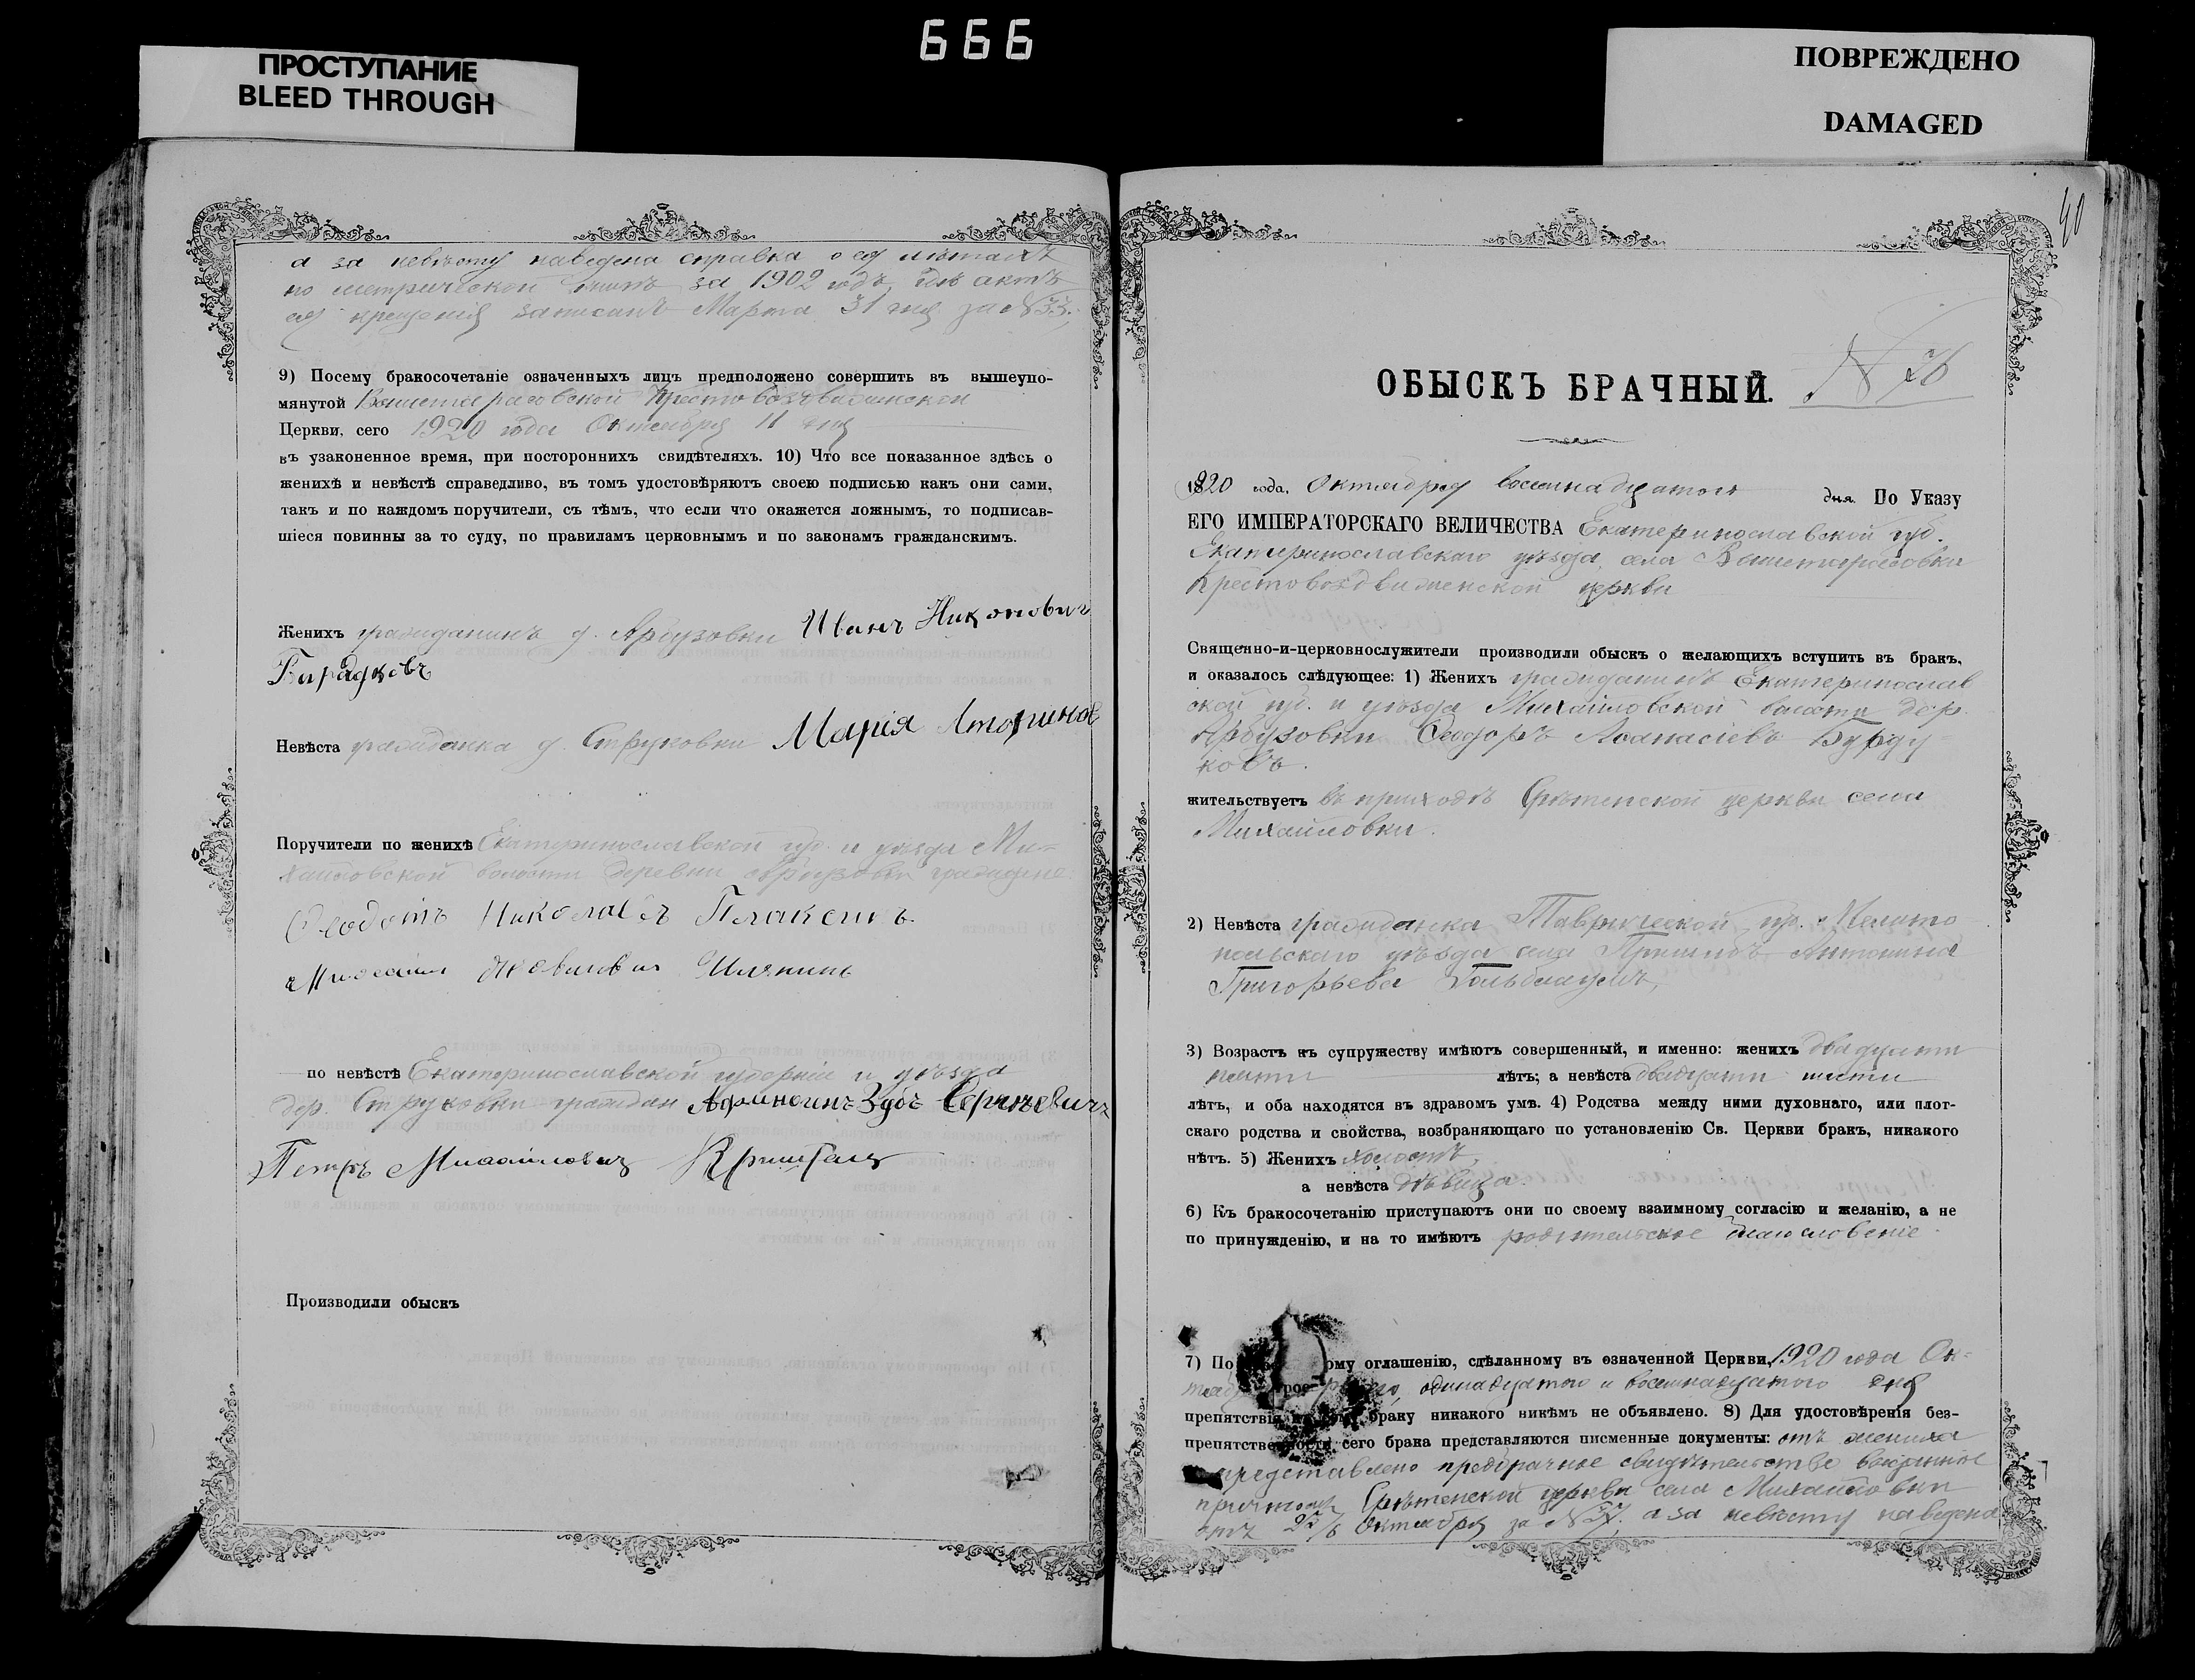 666
ПРОСТУПАНИЕ
BLEED THROUGH
ПОВРЕЖДЕНО
DAMAGED
а за невѣсту наведена справка о ея лѣтахъ
по метрической книгѣ за 1902 годъ, гдѣ актъ
ея крещенія записанъ Марта 31 дня за №33.
9) Посему бракосочетаніе означенныхъ лицъ предположено совершить въ вышеупо-
мянутой Крестовоздвиженской
Церкви, сего 1920 года Октября 11 дня
въ узаконенное время, при постороннихъ свидѣтеляхъ. 10) Что все показанное здѣсь о
женихѣ и невѣстѣ справедливо, въ томъ удостовѣряютъ своею подписью какъ они сами,
такъ и по каждомъ поручители, съ тѣмъ, что если что окажется ложнымъ, то подписав-
шіеся повинны за то суду, по правиламъ церковнымъ и по законамъ гражданскимъ.
Женихъ гражданинъ д. Арбузовки Иванъ Никонович
Невѣста гражданка д. Струковки Марія
Поручители по женихѣ Екатеринославской губ. и уѣзда Ми-
хайловской волости деревни Арбузовки граждане:
Ѳеодотъ Николаевъ
по невѣстѣ Екатеринославской губерніи и уѣзда
дер. Струковки граждан Зубъ Сергѣевичъ
Петръ Михайловичъ
Производили обыскъ
40
ОБЫСКЪ БРАЧНЫЙ.
№ 26
1920 года, Октября восемнадцатого дня. По Указу
ЕГО ИМПЕРАТОРСКАГО ВЕЛИЧЕСТВА Екатеринославской губ.
Екатеринославскаго уѣзда, села
Крестовоздвиженской церкви
Священно-и-церковнослужители производили обыскъ о желающихъ вступить въ бракъ,
и оказалось слѣдующее: 1) Женихъ гражданинъ Екатеринослав
ской губ. и уѣзда Михайловской волости дер.
Арбузовки Ѳеодоръ Аѳанасіевъ Бурду-
ковъ.
жительствуетъ въ приходѣ Срѣтенской церкви села
Михайловки.
2) Невѣста гражданка Таврической губ. Мелито
польскаго уѣзда села Пришибъ Антонина
Григорьева
3) Возрастъ къ супружеству имѣютъ совершенный, и именно: женихъ двадцати
пяти лѣтъ; а невѣста двадцати шести
лѣтъ, и оба находятся въ здравомъ умѣ. 4) Родства между ними духовнаго, или плот-
скаго родства и свойства, возбраняющаго по установленію Св. Церкви бракъ, никакого
нѣтъ. 5) Женихъ холостъ,
а невѣста дѣвица.
6) Къ бракосочетанію приступаютъ они по своему взаимному согласію и желанію, а не
по принужденію, и на то имѣютъ родительское благословеніе
7) По ому оглашенію, сдѣланному въ означенной Церкви, 1920 года Ок-
одинадцатого и восемнадцатого дня
препятствія браку никакого никѣмъ не объявлено. 8) Для удостовѣренія без-
препятственности сего брака представляются писменные документы: отъ жениха
представлено предбрачное свидѣтельство выданное
причтомъ Срѣтенской церкви села Михайловки
отъ Октября за № 37, а за невѣсту наведена